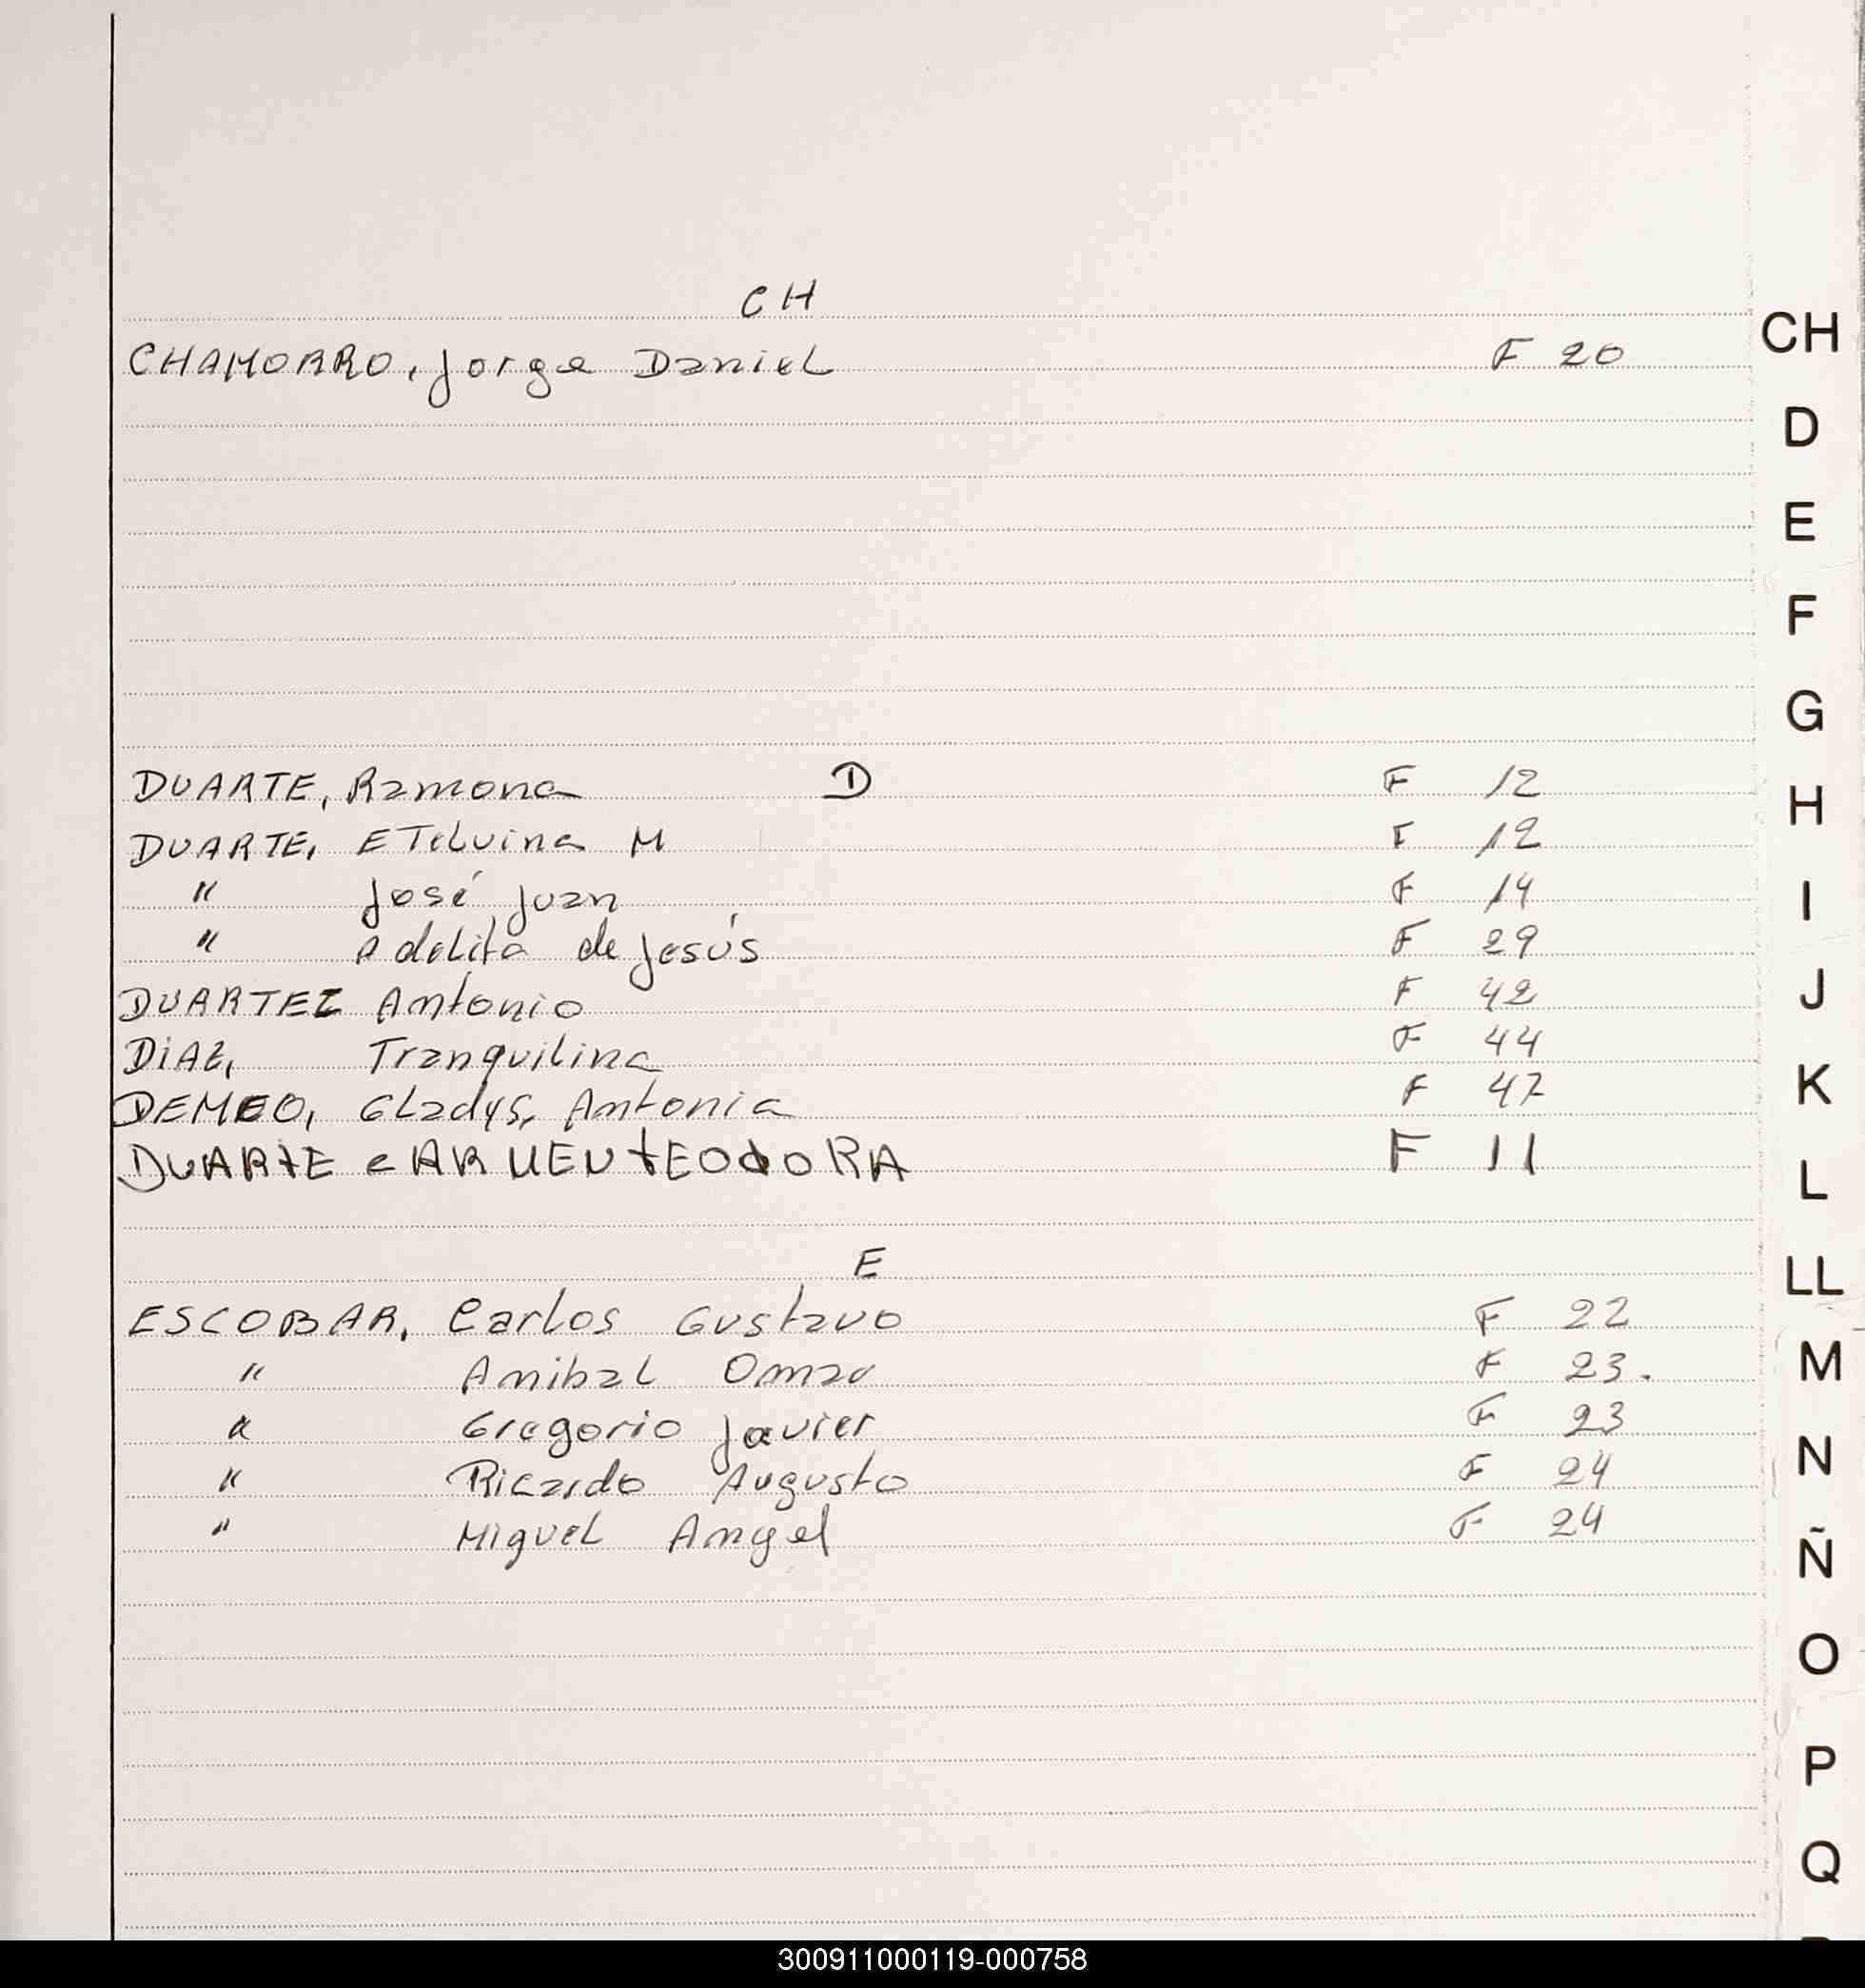 CH
CHAMORRO, Jorge Daniel F 20
DUARTE, Ramona D F 12
DUARTE, ETelvina M F 12
" José Juan F 14
" Adelita de Jesús F 29
DUARTEZ Antonio F 42
DiAZ, Tranquilina F 44
DEMEO, Gladys, Antonia F 47
DUARTE CARMEN TEODORA F 11
E
ESCOBAR, Carlos Gustavo F 22
" Anibal Omar F 23.
" Gregorio Javier F 23
" Ricardo Augusto F 24
" Miguel Angel F 24
CH
D
E
F
G
H
I
J
K
L
LL
M
N
Ñ
O
P
Q
300911000119-000758